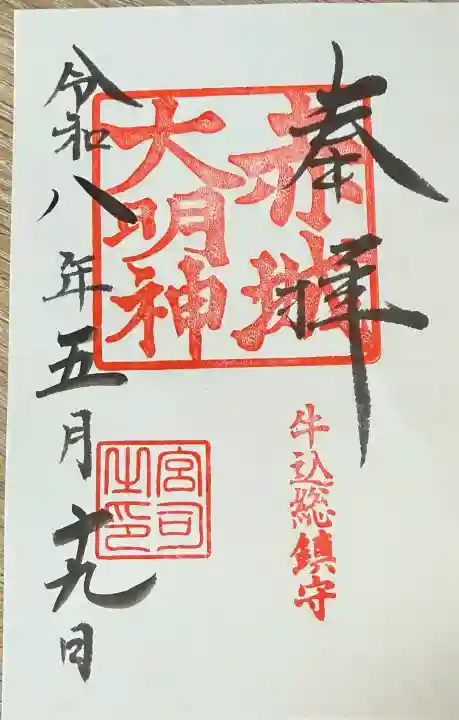 奉拝
赤城
大明神
牛込総鎮守
宮司
之印
令和八年五月十九日